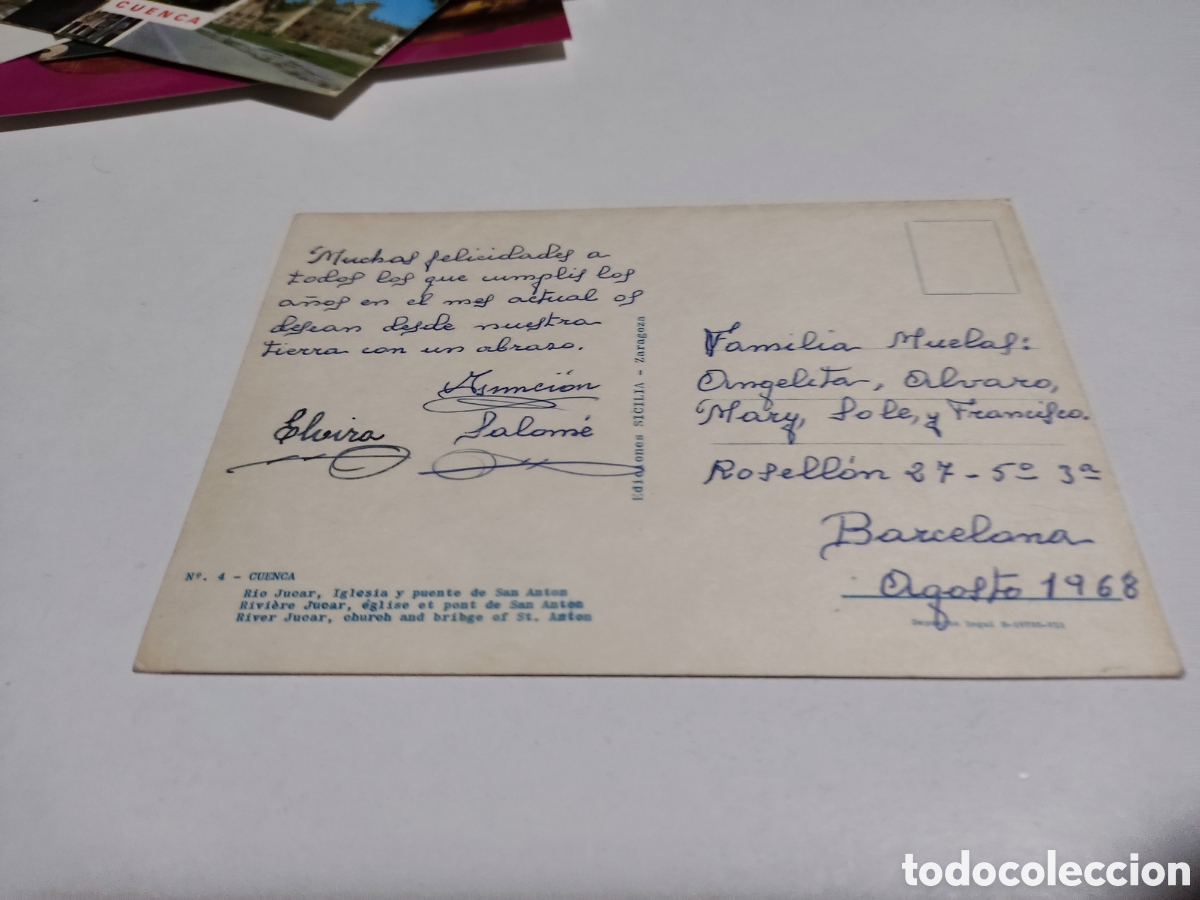 CUENCA
Muchas felicidades a
todos los que cumplis los
años en el mes actual os
desean desde nuestra
tierra con un abrazo.
Asunción
Elvira
Salomé
Ediciones SICILIA - Zaragoza
Familia Muelas:
Angelita, Alvaro,
Mary, Sole, y Francisco.
Rosellón 27-5º 3ª
Barcelona
Agosto 1968
Nº. 4 - CUENCA
Rio Jucar, Iglesia y puente de San Anton
Rivière Jucar, église et pont de San Anton
River Jucar, church and bribge of St. Anton
Legal
todocoleccion